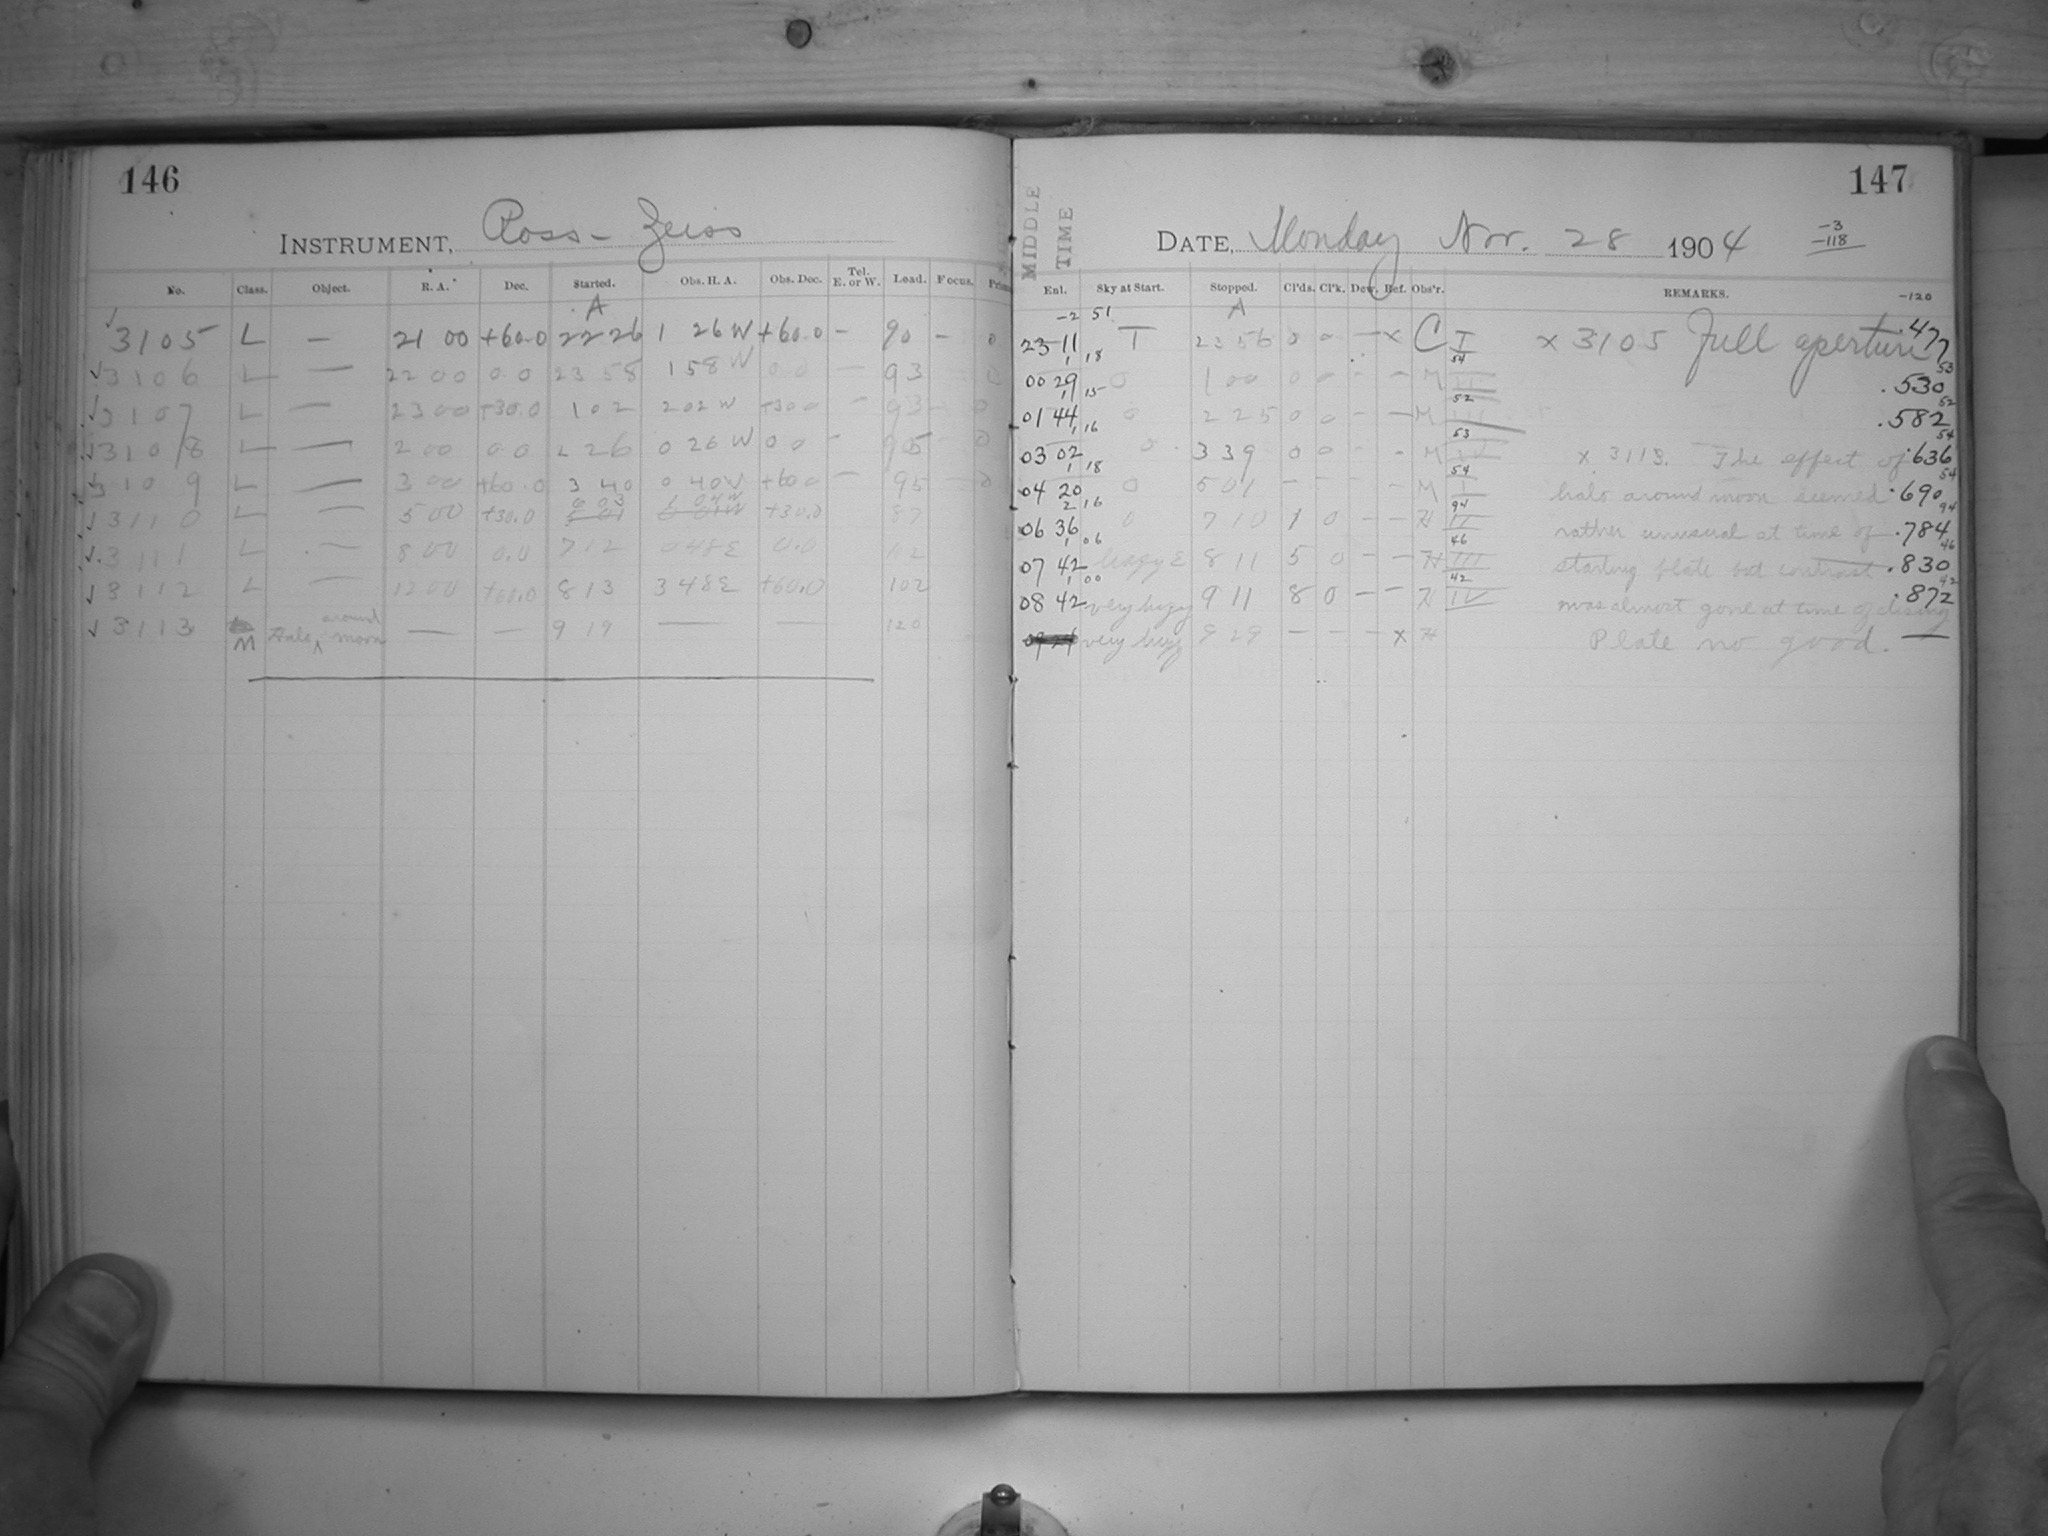 146
INSTRUMENT, Ross-Zeiss
No. Class. Object. R. A. Dec. Started. Obs. H. A. Obs. Dec. Tel. E. or W. Load. Focus.
A
3105 L — 21 00 +60.0 22 26 1 26 W +60.0 — 90 — 0
3106 L — 22 00 0.0 23 58 1 58 W 0.0 — 93 0
3107 L — 23 00 +30.0 1 02 2 02 W +30.0 — 93 0
3108 L — 2 00 0.0 2 26 0 26 W 0.0 — 95 0
3109 L — 3 00 +60.0 3 40 0 40 W +60.0 — 95 0
3110 L — 5 00 +30.0 6 03 +30.0 87
3111 L — 8 00 0.0 7 12 0 48 E 0.0 102
3112 L — 12 00 +60.0 8 13 3 48 E +60.0 102
3113 M Halo around moon — — 9 19 — — 120
147
MIDDLE TIME
DATE, Monday Nov. 28 1904
-3
-118
Enl. Sky at Start. Stopped. Cl'ds. Cl'k. Dew. Ref. Obs'r. REMARKS. -120
-2 51 A
23 11 T 23 56 0 0 — x C I x 3105 Full aperture .477
1 18 54 53
00 29 0 1 00 0 0 - - M II .530
1 15 52 52
01 44 0 2 25 0 0 - — M III .582
1 16 53 54
03 02 0 3 39 0 0 - - M IV x 3113. The effect of .636
1 18 54 54
04 20 0 5 01 - - - - M I halo around moon seemed .690
2 16 94 94
06 36 0 7 10 1 0 - - H II rather unusual at time of .784
1 06 46 46
07 42 hazy E 8 11 5 0 - - H III starting plate but contrast .830
1 00 42 42
08 42 very hazy 9 11 8 0 - - H IV was almost gone at time of closing .872
very hazy 9 29 - - - x H Plate no good. —